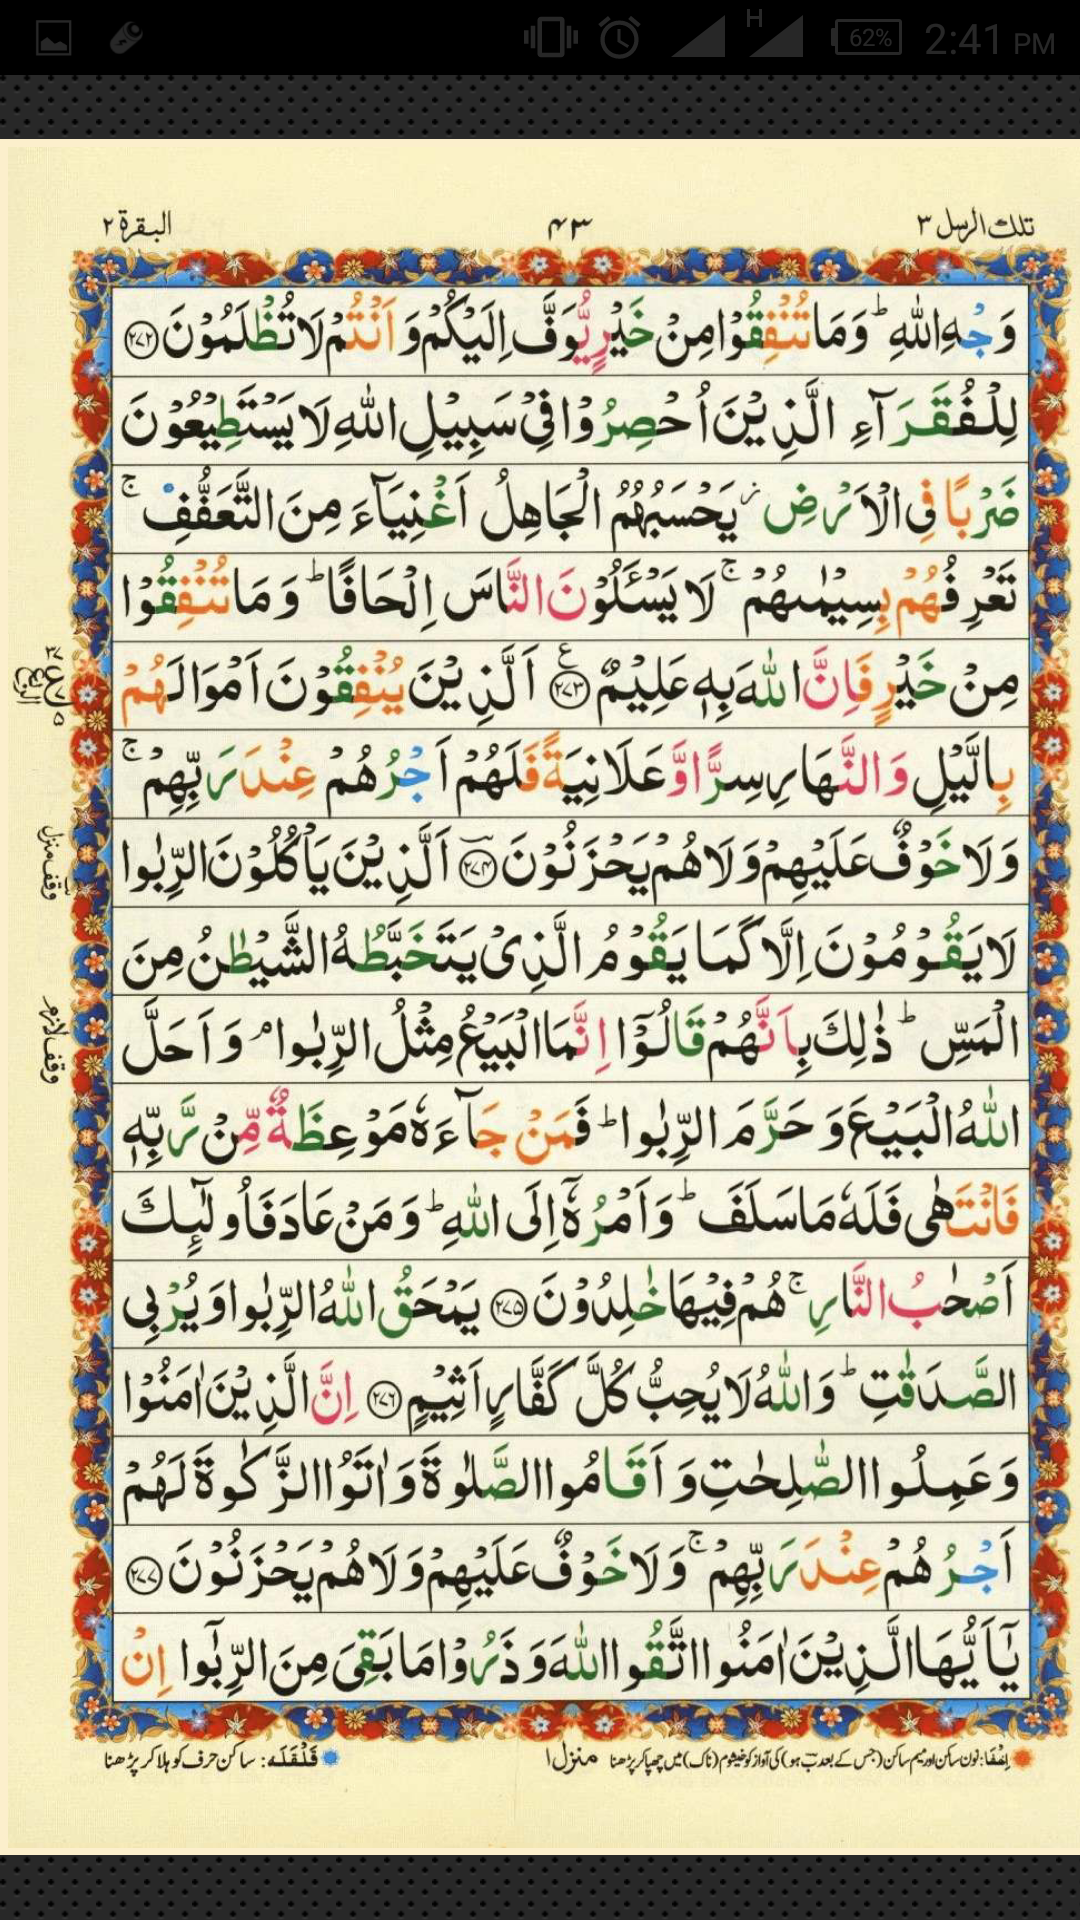 62% 2:41 PM
H
تلك الرسل ٣
٤٣
البقرة ٢
وَجْهِ اللّٰهِ ؕ وَمَا تُنْفِقُوْا مِنْ خَيْرٍ يُّوَفَّ اِلَيْكُمْ وَاَنْتُمْ لَا تُظْلَمُوْنَ ﴿۲۷۲﴾
لِلْفُقَرَآءِ الَّذِيْنَ اُحْصِرُوْا فِيْ سَبِيْلِ اللّٰهِ لَا يَسْتَطِيْعُوْنَ
ضَرْبًا فِى الْاَرْضِ ؗ يَحْسَبُهُمُ الْجَاهِلُ اَغْنِيَآءَ مِنَ التَّعَفُّفِ ۚ
تَعْرِفُهُمْ بِسِيْمٰىهُمْ ۚ لَا يَسْـَٔلُوْنَ النَّاسَ اِلْحَافًا ؕ وَمَا تُنْفِقُوْا
مِنْ خَيْرٍ فَاِنَّ اللّٰهَ بِهٖ عَلِيْمٌ ﴿۲۷۳﴾ ع اَلَّذِيْنَ يُنْفِقُوْنَ اَمْوَالَهُمْ
بِالَّيْلِ وَالنَّهَارِ سِرًّا وَّعَلَانِيَةً فَلَهُمْ اَجْرُهُمْ عِنْدَ رَبِّهِمْ ۚ
وَلَا خَوْفٌ عَلَيْهِمْ وَلَا هُمْ يَحْزَنُوْنَ ﴿۲۷۴﴾ اَلَّذِيْنَ يَاْكُلُوْنَ الرِّبٰوا
وقف منزل
لَا يَقُوْمُوْنَ اِلَّا كَمَا يَقُوْمُ الَّذِيْ يَتَخَبَّطُهُ الشَّيْطٰنُ مِنَ
الْمَسِّ ؕ ذٰلِكَ بِاَنَّهُمْ قَالُوْٓا اِنَّمَا الْبَيْعُ مِثْلُ الرِّبٰوا ۘ وَاَحَلَّ
وقف لازم
اللّٰهُ الْبَيْعَ وَحَرَّمَ الرِّبٰوا ؕ فَمَنْ جَآءَهٗ مَوْعِظَةٌ مِّنْ رَّبِّهٖ
فَانْتَهٰى فَلَهٗ مَا سَلَفَ ؕ وَاَمْرُهٗٓ اِلَى اللّٰهِ ؕ وَمَنْ عَادَ فَاُولٰٓئِكَ
اَصْحٰبُ النَّارِ ۚ هُمْ فِيْهَا خٰلِدُوْنَ ﴿۲۷۵﴾ يَمْحَقُ اللّٰهُ الرِّبٰوا وَيُرْبِى
الصَّدَقٰتِ ؕ وَاللّٰهُ لَا يُحِبُّ كُلَّ كَفَّارٍ اَثِيْمٍ ﴿۲۷۶﴾ اِنَّ الَّذِيْنَ اٰمَنُوْا
وَعَمِلُوا الصّٰلِحٰتِ وَاَقَامُوا الصَّلٰوةَ وَاٰتَوُا الزَّكٰوةَ لَهُمْ
اَجْرُهُمْ عِنْدَ رَبِّهِمْ ۚ وَلَا خَوْفٌ عَلَيْهِمْ وَلَا هُمْ يَحْزَنُوْنَ ﴿۲۷۷﴾
يٰٓاَيُّهَا الَّذِيْنَ اٰمَنُوا اتَّقُوا اللّٰهَ وَذَرُوْا مَا بَقِيَ مِنَ الرِّبٰٓوا اِنْ
اِخْفَا: نون ساکن اور میم ساکن (جس کے بعد ب ہو) کی آواز کو خیشوم (ناک) میں چھپا کر پڑھنا منزل ۱ قَلْقَلَه: ساکن حرف کو ہلا کر پڑھنا